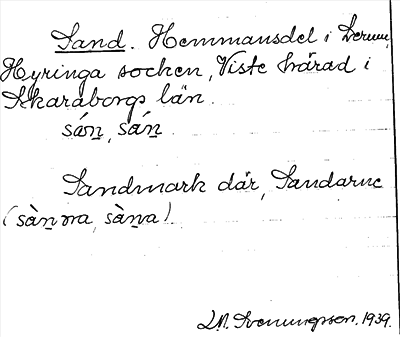 Sand. Hemmansdel i Lerum,
Hyringa socken, Viste härad i
Skaraborgs län.
sán̲, sán̲
Sandmark där, Sandarne
(sàn̲na, sàn̲a).
Svenungsson. 1939.